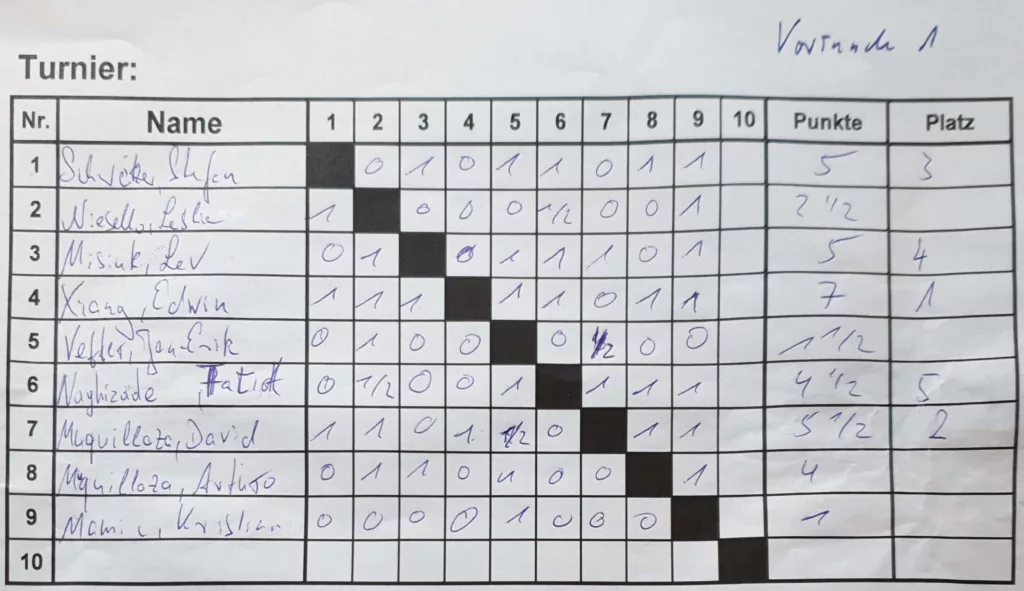 Vorrunde 1
Turnier:
Nr. Name 1 2 3 4 5 6 7 8 9 10 Punkte Platz
1 Stefan 0 1 0 1 1 0 1 1 5 3
2 Niesello, Leslie 1 0 0 0 1/2 0 0 1 2 1/2
3 Misiuk, Lev 0 1 0 1 1 1 0 1 5 4
4 Xiang, Edwin 1 1 1 1 1 0 1 1 7 1
5 Jan-Erik 0 1 0 0 0 1/2 0 0 1 1/2
6 Naghizade, 0 1/2 0 0 1 1 1 1 4 1/2 5
7 Muquilloza, David 1 1 0 1 1/2 0 1 1 5 1/2 2
8 Mquilloza, Arturo 0 1 1 0 1 0 0 1 4
9 Kristian 0 0 0 0 1 0 0 0 1
10